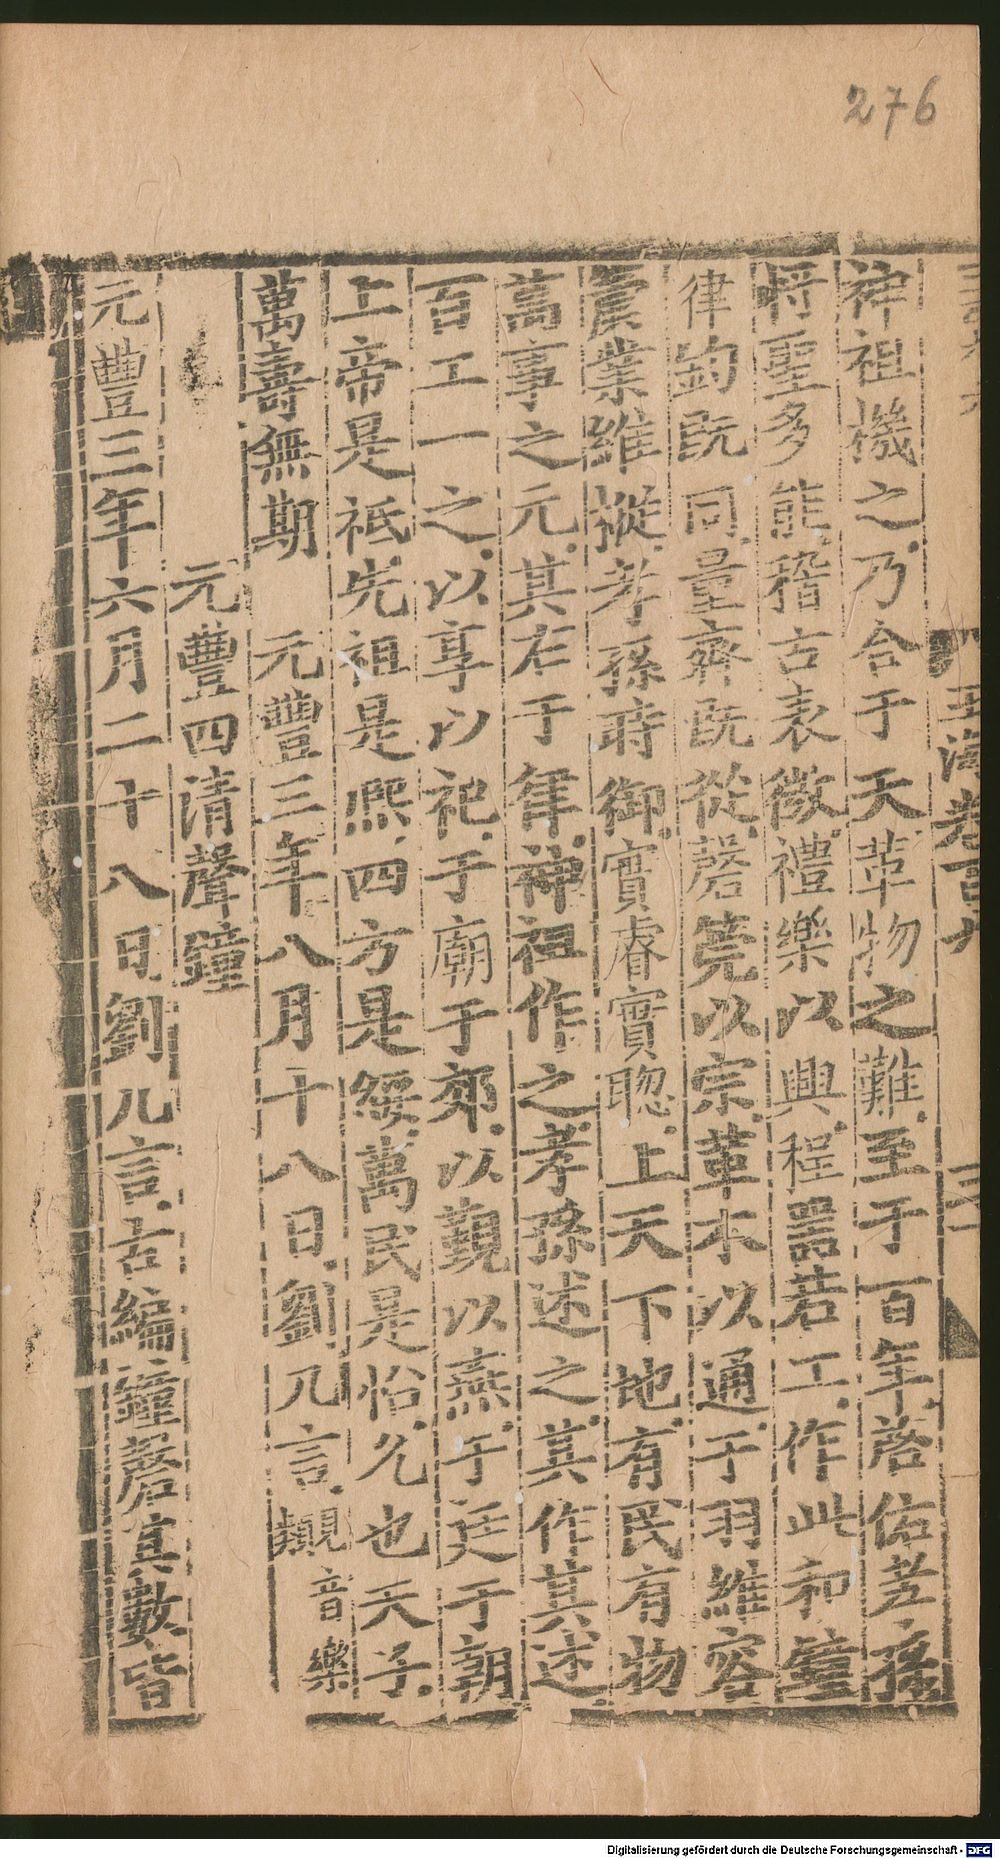 276
玉海卷百九
神祖機之乃合于天革物之難至于百年啓佑孝孫
將聖多能稽古表微禮樂以興程器若工作此和鐘
律鈞既同量齊既從磬筦以宗革木以通于羽維容
虡業維摐孝孫蒔御實睿實聰上天下地有民有物
萬事之元其右于年神祖作之孝孫述之其作其述
百工一之以享以祀于廟于郊以觀以燕于廷于朝
上帝是祗先祖是熙四方是綏萬民是怡允也天子
萬壽無期 元豐三年八月十八日劉几言類見音樂
元豐四清聲鐘
元豐三年六月二十八日劉几言古編鐘磬其數皆
Digitalisierung gefördert durch die Deutsche Forschungsgemeinschaft - DFG